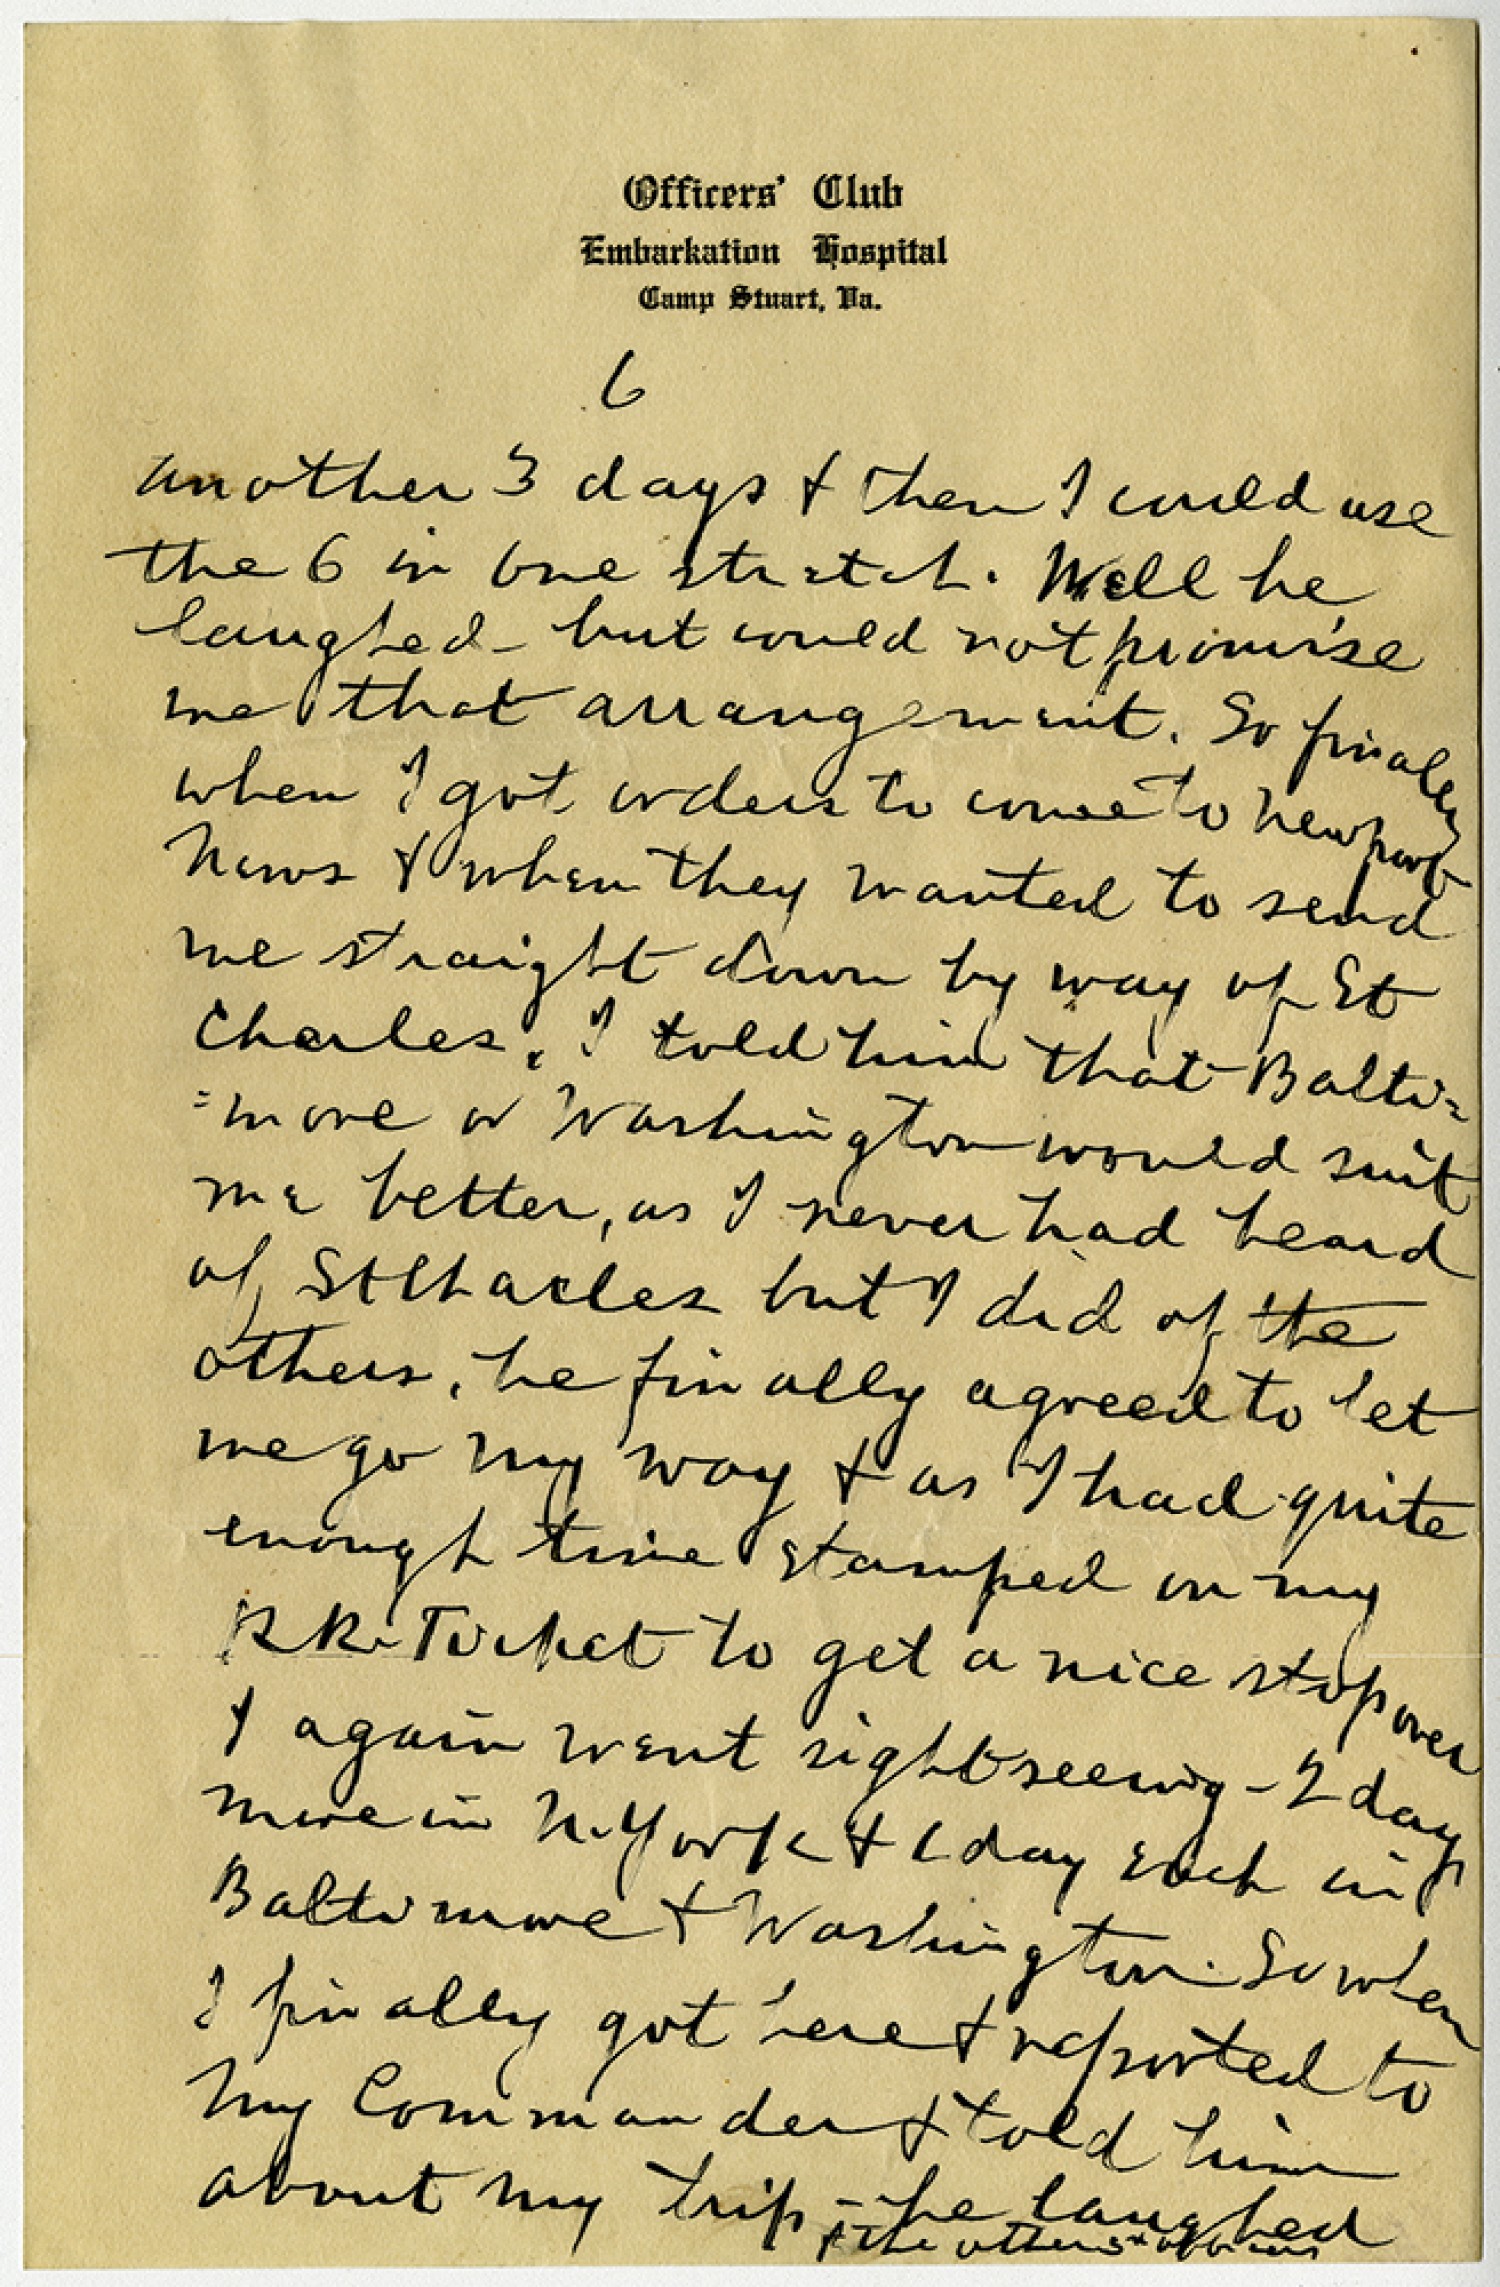 Officers' Club
Embarkation Hospital
Camp Stuart, Va.
6
another 3 days & then I could use
the 6 in one stretch. Well he
laughed - but could not promise
me that arrangement. So finally
when I got orders to come to Newport
News & when they wanted to send
me straight down by way of St
Charles, I told him that Balti=
=more or Washington would suit
me better, as I never had heard
of St Charles but I did of the
others. he finally agreed to let
me go my way & as I had quite
enough time stamped on my
R.R. Ticket to get a nice stopover
I again went sightseeing - 2 days
more in N. York & 1 day each in
Baltimore & Washington. So when
I finally got here & reported to
my Commander & told him
about my trip - he laughed
& the other officers